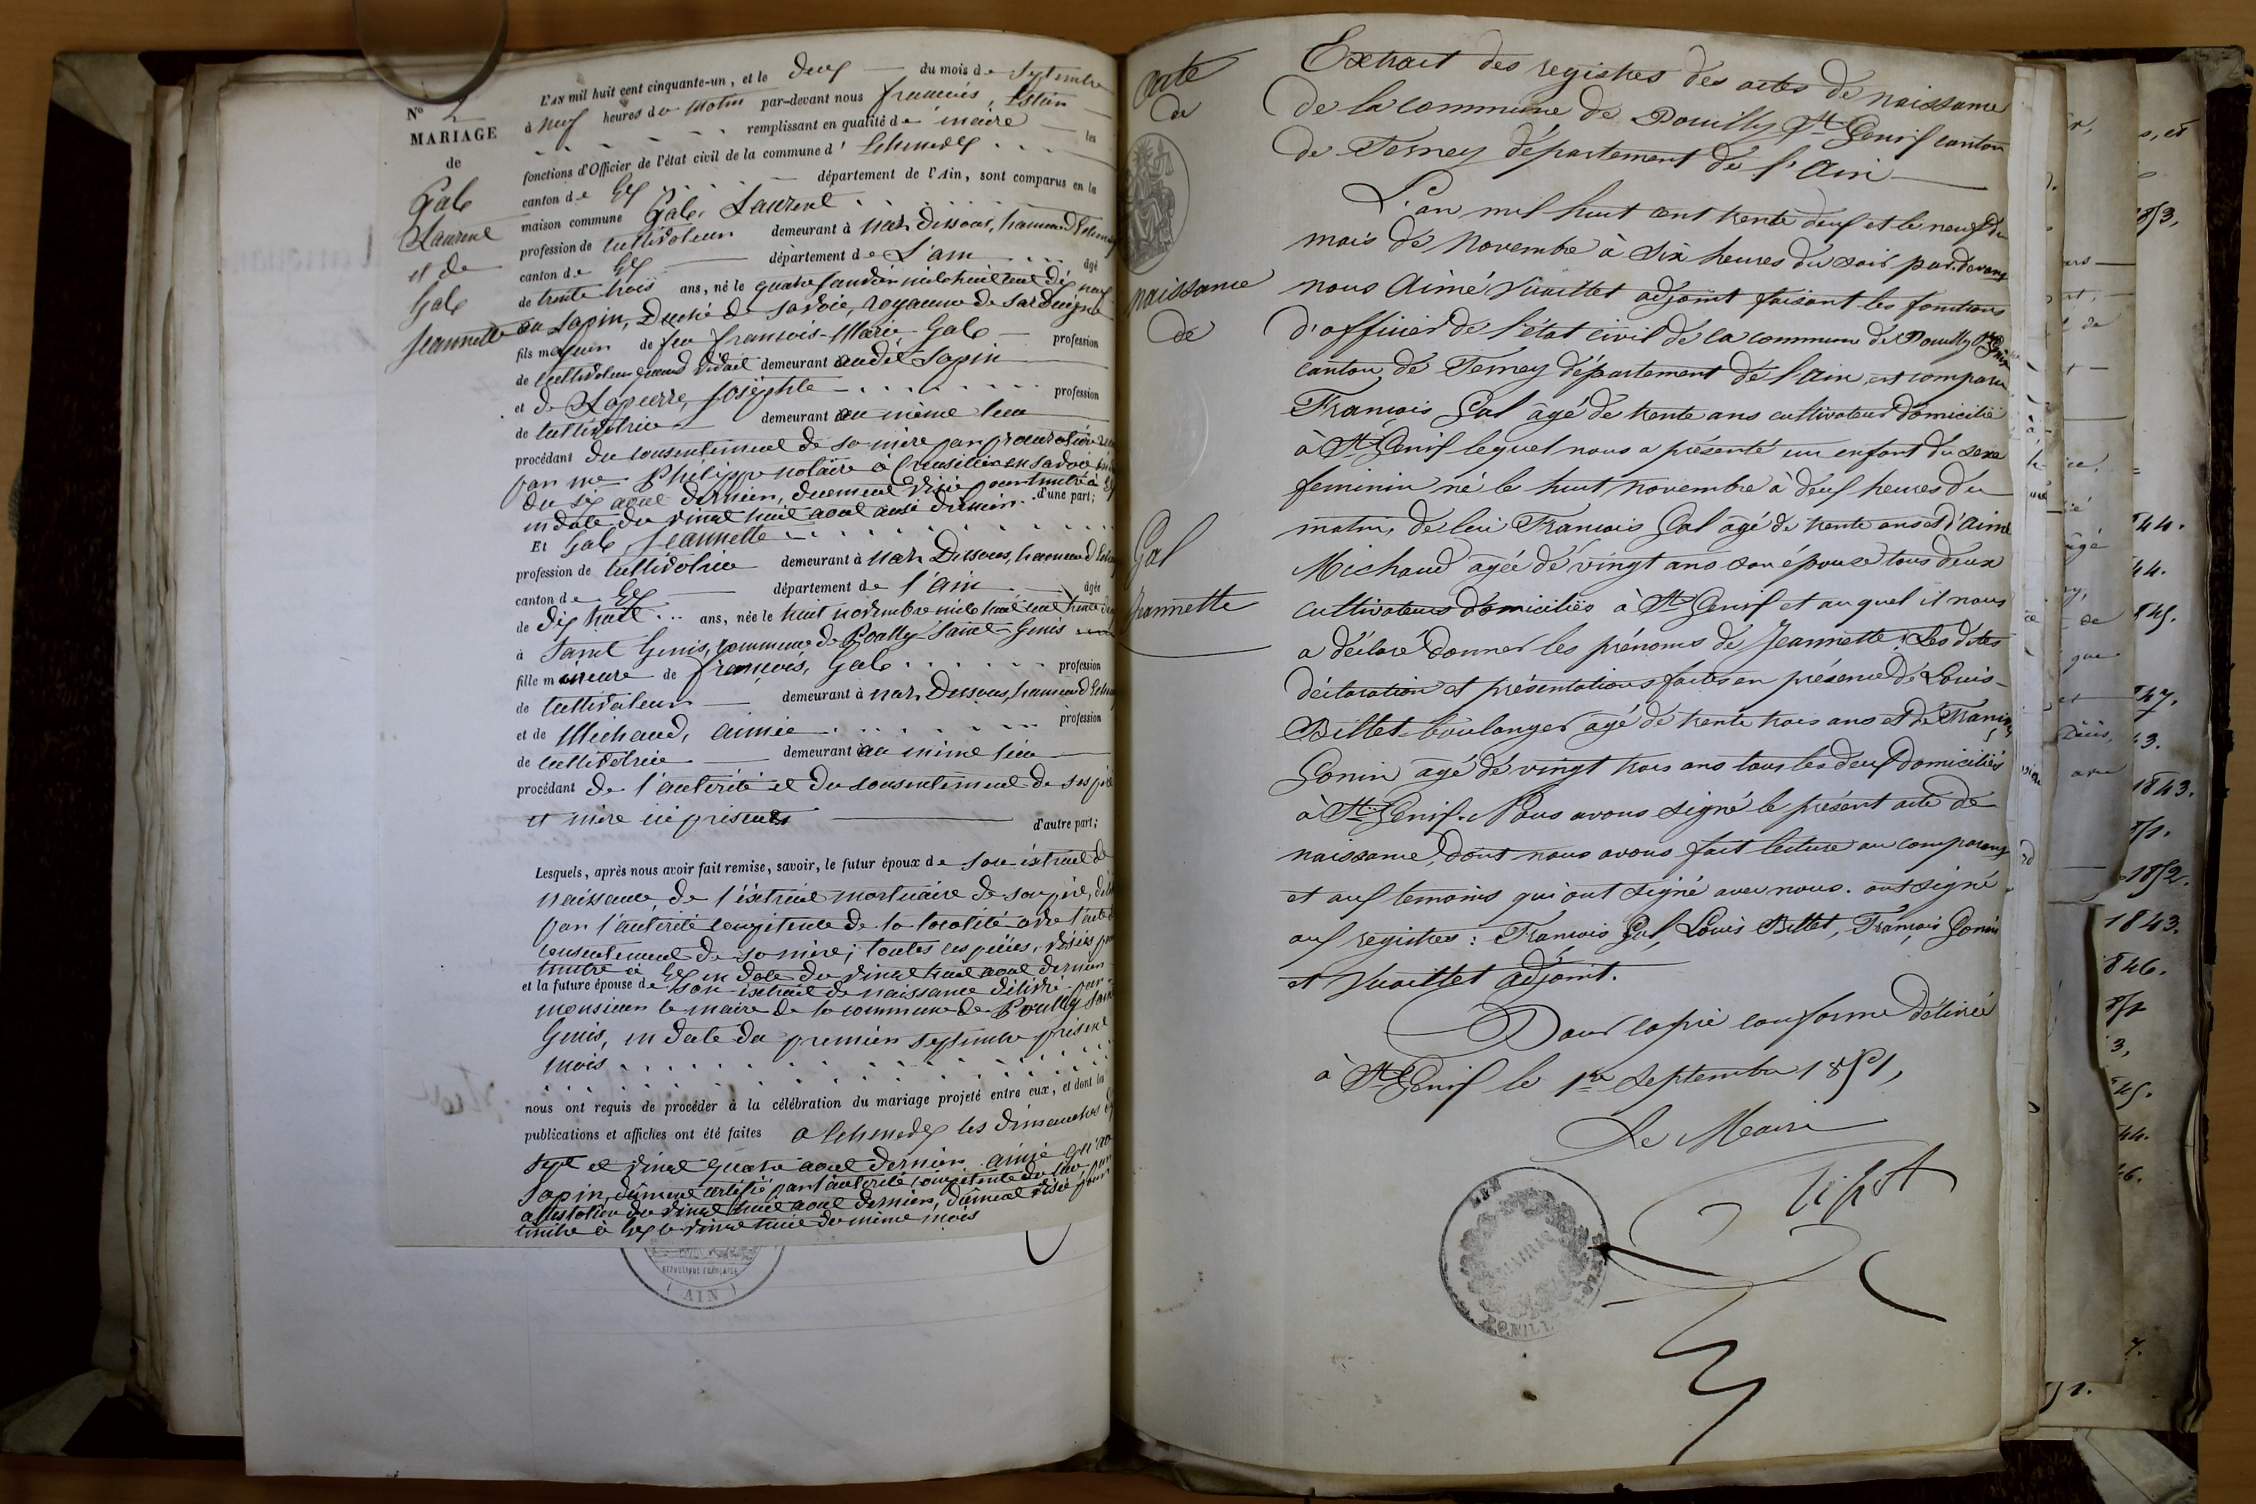 N° 2
MARIAGE
de
Gale
Laurent
et de
Gale
Jeannette
L'AN mil huit cent cinquante-un, et le deux du mois de septembre
à neuf heures du matin par-devant nous françois,
remplissant en qualité de maire les
fonctions d'Officier de l'état civil de la commune d'
canton de Gex département de l'Ain, sont comparus en la
maison commune Gale, Laurent
profession de cultivateur demeurant à naz Dessous, hameau d'
canton de Gex département de L'ain âgé
de trente trois ans, né le quatre janvier mil huit cent dix
au Sapin, Duché de savoie, royaume de sardaigne
fils majeur de feu françois-Marie Gale profession
de cultivateur quand vivait demeurant audit Sapin
et de Lapierre, Josephte profession
de cultivatrice demeurant au même lieu
procédant du consentement de sa mère par procuration
par me Philippe notaire à en savoie
du six aout dernier, duement visé pour timbre à
en date du vingt huit aout aussi dernier. d'une part;
Et Gale, Jeannette
profession de cultivatrice demeurant à naz Dessous, hameau d'
canton de Gex département de l'ain âgée
de dix huit ans, née le huit novembre mil huit cent trente
à Saint Genis, commune de Pouilly Saint Genis
fille mineure de françois, Gale profession
de cultivateur demeurant à naz Dessous, hameau d'
et de Michaud, aimée profession
de cultivatrice demeurant au même lieu
procédant de l'autorité et du consentement de ses père
et mère ici présents d'autre part;
Lesquels, après nous avoir fait remise, savoir, le futur époux de son extrait de
naissance, de l'extrait mortuaire de son père,
par l'autorité compétente de la localité
consentement de sa mère; toutes ces pièces, visées pour
timbre à Gex en date du vingt huit aout dernier
et la future épouse de son extrait de naissance délivré par
monsieur le maire de la commune de Pouilly Saint
Genis, en date du premier septembre présent
mois
nous ont requis de procéder à la célébration du mariage projeté entre eux, et dont les
publications et affiches ont été faites a les dimanches
sept et vingt quatre aout dernier, ainsi qu'au
Sapin, dûment certifié par l'autorité compétente du lieu, par
attestation du vingt huit aout dernier, dûment visée pour
timbre à Gex le vingt huit du même mois
REPUBLIQUE FRANÇAISE
(AIN)
acte
de
naissance
de
Gal
Jeannette
Extrait des registres des actes de naissance
de la commune de Pouilly St Genif canton
de Ferney département de l'Ain
L'an mil huit cent trente deux et le neuf du
mois de Novembre à six heures du soir par devant
nous Aimé Vuaillet adjoint faisant les fonctions
d'officier de l'état civil de la commune de Pouilly St Genif
canton de Ferney département de l'Ain, est comparu
François Gal agé de trente ans cultivateur domicilié
à St Genif lequel nous a présenté un enfant du sexe
feminin né le huit novembre à deux heures du
matin, de lui François Gal agé de trente ans et d'Aimé
Michaud agée de vingt ans son épouse tous deux
cultivateurs domiciliés à St Genif et auquel il nous
a déclaré donner les prénoms de Jeannette. Les dites
déclaration et présentations faites en présence de Louis
Billet boulanger agé de trente trois ans et de François
Gonin agé de vingt trois ans tous les deux domiciliés
à St Genif. Nous avons signé le présent acte de
naissance, dont nous avons fait lecture au comparant
et aux temoins qui ont signé avec nous. ont signé
aux registres: François Gal, Louis Billet, François Gonin
et Vuaillet adjoint.
Pour copie conforme délivrée
à St Genif le 1er Septembre 1851,
Le Maire
MAIRIE
1853,
1843.
1852.
1843.